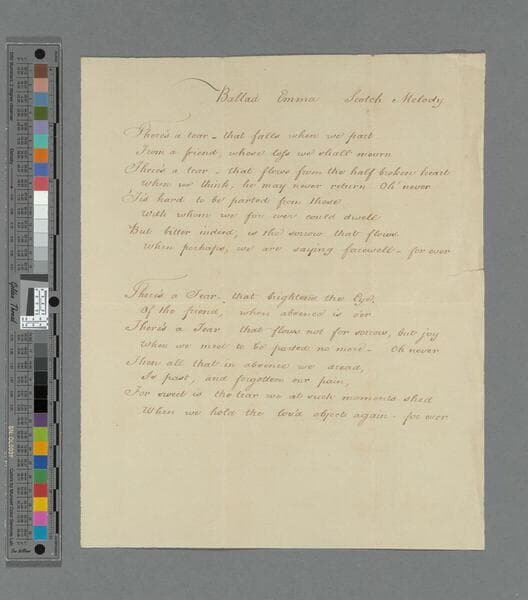 Ballad Emma Scotch Melody
There's a tear - that falls when we part
From a friend, whose loss we shall mourn
There's a tear - that flows from the half broken heart
When we think, he may never return Oh never
'Tis hard to be parted from those
With whom we for ever could dwell
But bitter indeed, is the sorrow that flows
When perhaps, we are saying farewell - for ever
There's a Tear - that brightens the Eye,
Of the friend, when absence is o'er
There's a Tear that flows not for sorrow, but joy
When we meet to be parted no more - Oh never
Then all that in absence we dread,
Is past, and forgotten our pain,
For sweet is the tear we at such moments shed
When we hold the lov'd object again - for ever
Golden Thread